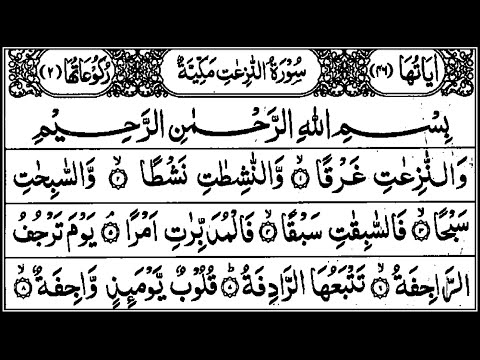 اٰيَاتُهَا (٤٦) سُوْرَةُ النّٰزِعٰتِ مَكِّيَّةٌ رُكُوْعَاتُهَا (٢)
بِسْمِ اللهِ الرَّحْمٰنِ الرَّحِيْمِ
وَالنّٰزِعٰتِ غَرْقًا ۙ﴿١﴾ وَّالنّٰشِطٰتِ نَشْطًا ۙ﴿٢﴾ وَّالسّٰبِحٰتِ
سَبْحًا ۙ﴿٣﴾ فَالسّٰبِقٰتِ سَبْقًا ۙ﴿٤﴾ فَالْمُدَبِّرٰتِ اَمْرًا ۘ﴿٥﴾ يَوْمَ تَرْجُفُ
الرَّاجِفَةُ ۙ﴿٦﴾ تَتْبَعُهَا الرَّادِفَةُ ؕ﴿٧﴾ قُلُوْبٌ يَّوْمَئِذٍ وَّاجِفَةٌ ۙ﴿٨﴾